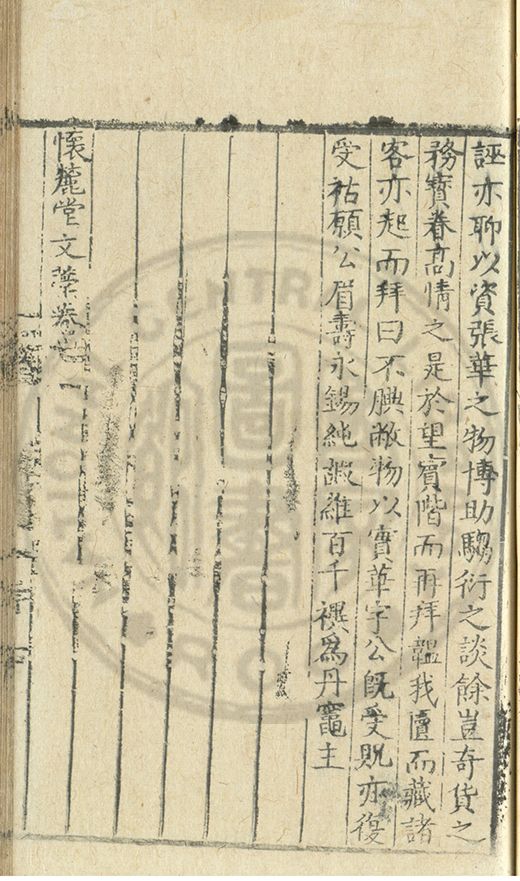 誣亦聊以資張華之物博助騶衍之談餘豈奇貨之
務寳眷高情之是於望賓階而再拜韞我匵而藏諸
客亦起而拜曰不腆敝物以實華字公旣受貺亦復
受祜願公眉壽永錫純嘏維百千禩爲丹竈主
懷麓堂文藁卷之一